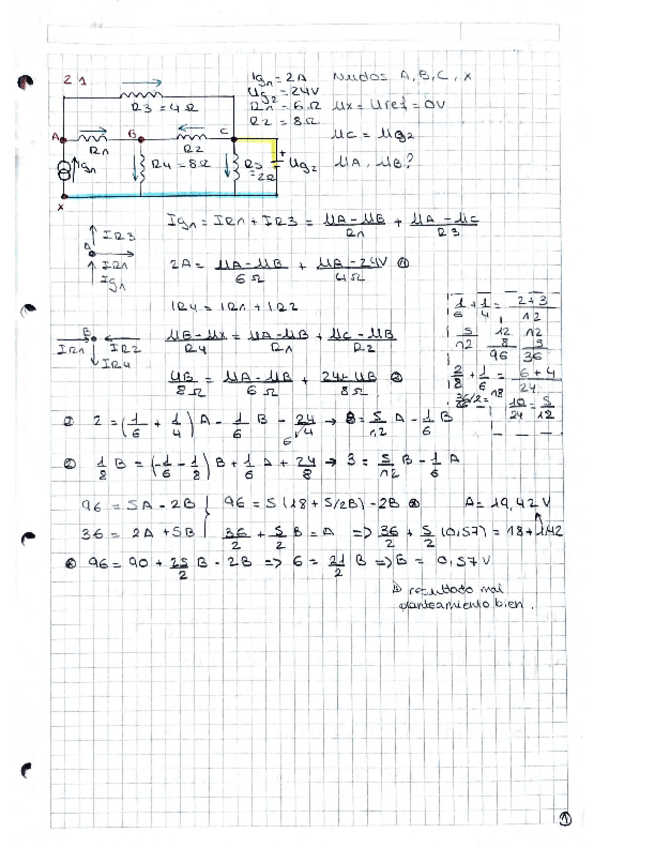 2 1
Ig1 = 2A
Ug2 = 24V
R1 = 6Ω
R2 = 8Ω
Nudos A, B, C, X
Ux = Uref = 0V
Uc = Ug2
UA, UB?
R3 = 4Ω
A
R1
B
R2
C
Ig1
R4 = 8Ω
R5 = 2Ω
+
Ug2
X
IR3
A
IR1
Ig1
Ig1 = IR1 + IR3 = (UA - UB)/R1 + (UA - UC)/R3
2A = (UA - UB)/6Ω + (UB - 24V)/4Ω ①
IR4 = IR1 + IR2
B
IR1
IR2
IR4
(UB - Ux)/R4 = (UA - UB)/R1 + (UC - UB)/R2
UB/8Ω = (UA - UB)/6Ω + (24 - UB)/8Ω ②
1/6 + 1/4 = (2+3)/12
5/12 12 12
8 3
96 36
2/8 + 1/6 = (6+4)/24
36/2 = 18
10/24 = 5/12
① 2 = (1/6 + 1/4) A - 1/6 B - 24/4 6 → 8 = 5/12 A - 1/6 B
② 1/8 B = (-1/6 - 1/8) B + 1/6 A + 24/8 → 3 = 5/12 B - 1/6 A
96 = 5A - 2B } 96 = 5 (18 + 5/2B) - 2B ⊛ A = 19,42 V
36 = 2A + 5B 36/2 + 5/2 B = A => 36/2 + 5/2 (0,57) = 18 + 1,42
⊛ 96 = 90 + 25/2 B - 2B => 6 = 21/2 B => B = 0,57 V
resultado mal
planteamiento bien.
1